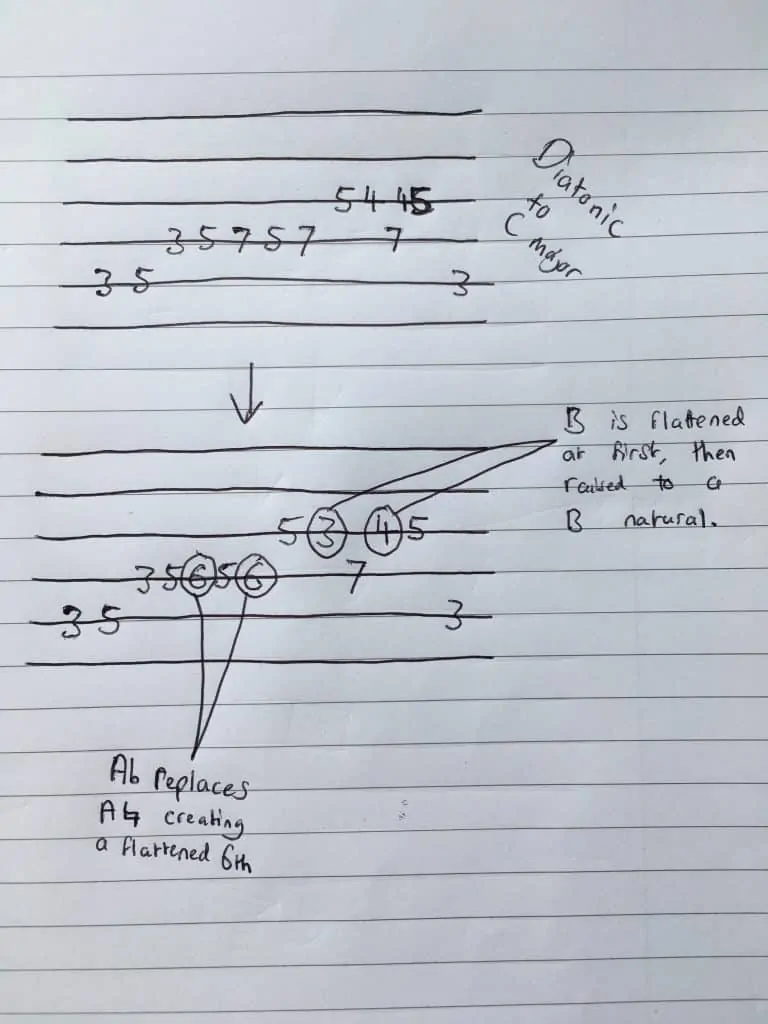 5 4 4 5
3 5 7 5 7 7
3 5 3
Diatonic
to
C major
5 3 4 5
3 5 6 5 6 7
3 5 3
B is flattened
at first, then
raised to a
B natural.
Ab replaces
A♮ creating
a flattened 6th